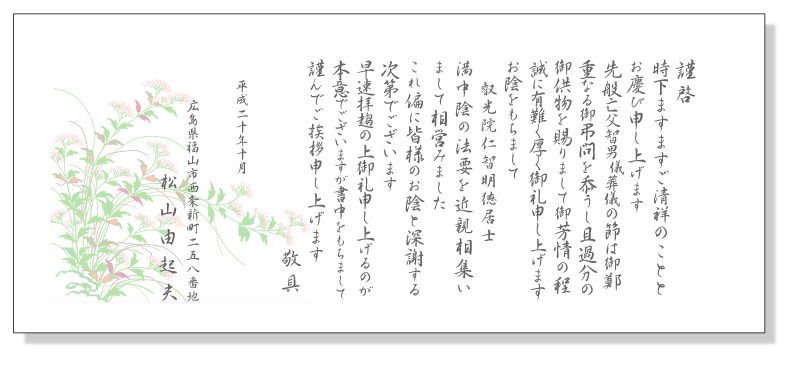 謹啓
時下ますますご清祥のことと
お慶び申し上げます
先般亡父智男儀葬儀の節は御鄭
重なる御弔問を忝うし且過分の
御供物を賜りまして御芳情の程
誠に有難く厚く御礼申し上げます
お陰をもちまして
叡光院仁智明徳居士
満中陰の法要を近親相集い
まして相営みました
これ偏に皆様のお陰と深謝する
次第でございます
早速拝趨の上御礼申し上げるのが
本意でございますが書中をもちまして
謹んでご挨拶申し上げます
敬具
平成二十年十月
広島県福山市西条新町二五八番地
松山由起夫